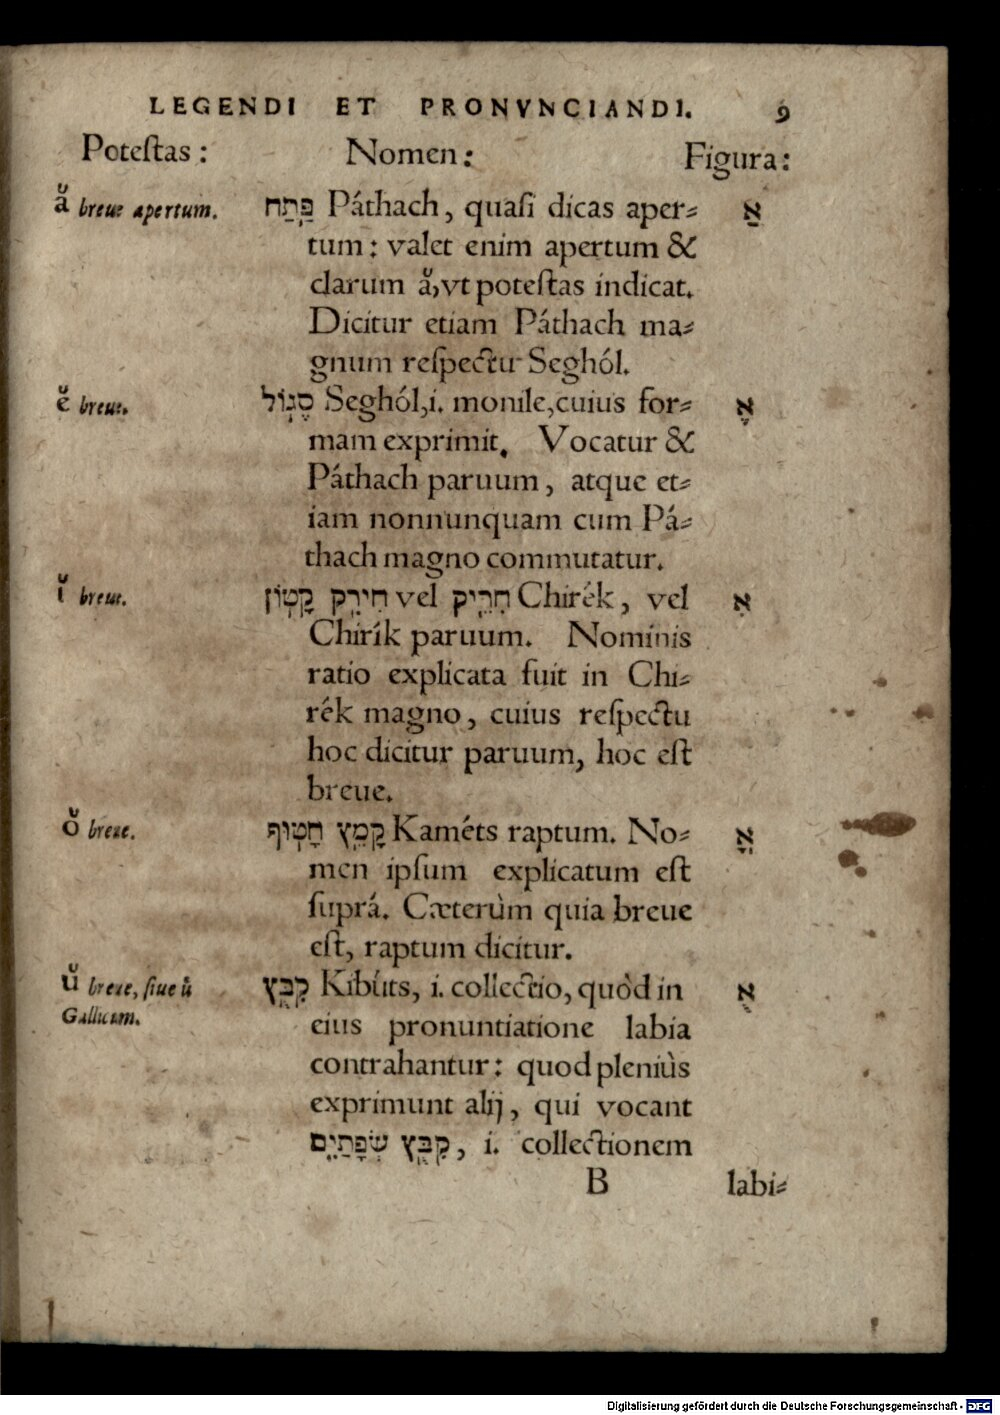 LEGENDI ET PRONVNCIANDI. 9
Poteſtas : Nomen : Figura :
ă breue apertum. פַּתַח Páthach, quaſi dicas aper- אַ
tum : valet enim apertum &
clarum ă, vt poteſtas indicat.
Dicitur etiam Páthach ma-
gnum reſpectu Seghól.
ĕ breue. סֶגוֹל Seghól, i. monile, cuius for- אֶ
mam exprimit. Vocatur &
Páthach paruum, atque et-
iam nonnunquam cum Pá-
thach magno commutatur.
ĭ breue. חִירֶק קָטוֹן vel חִרִיק Chirék, vel אִ
Chirík paruum. Nominis
ratio explicata fuit in Chi-
rék magno, cuius reſpectu
hoc dicitur paruum, hoc eſt
breue.
ŏ breue. קָמֵץ חָטוּף Kaméts raptum. No- אֳ
men ipſum explicatum eſt
ſuprá. Cæterùm quia breue
eſt, raptum dicitur.
ŭ breue, ſiue ù קִבֻּץ Kibúts, i. collectio, quòd in אֻ
Gallicum. eius pronuntiatione labia
contrahantur : quod pleniùs
exprimunt alij, qui vocant
קִבֻּץ שְׂפָתַיִם, i. collectionem
B labi-
Digitalisierung gefördert durch die Deutsche Forschungsgemeinschaft - DFG